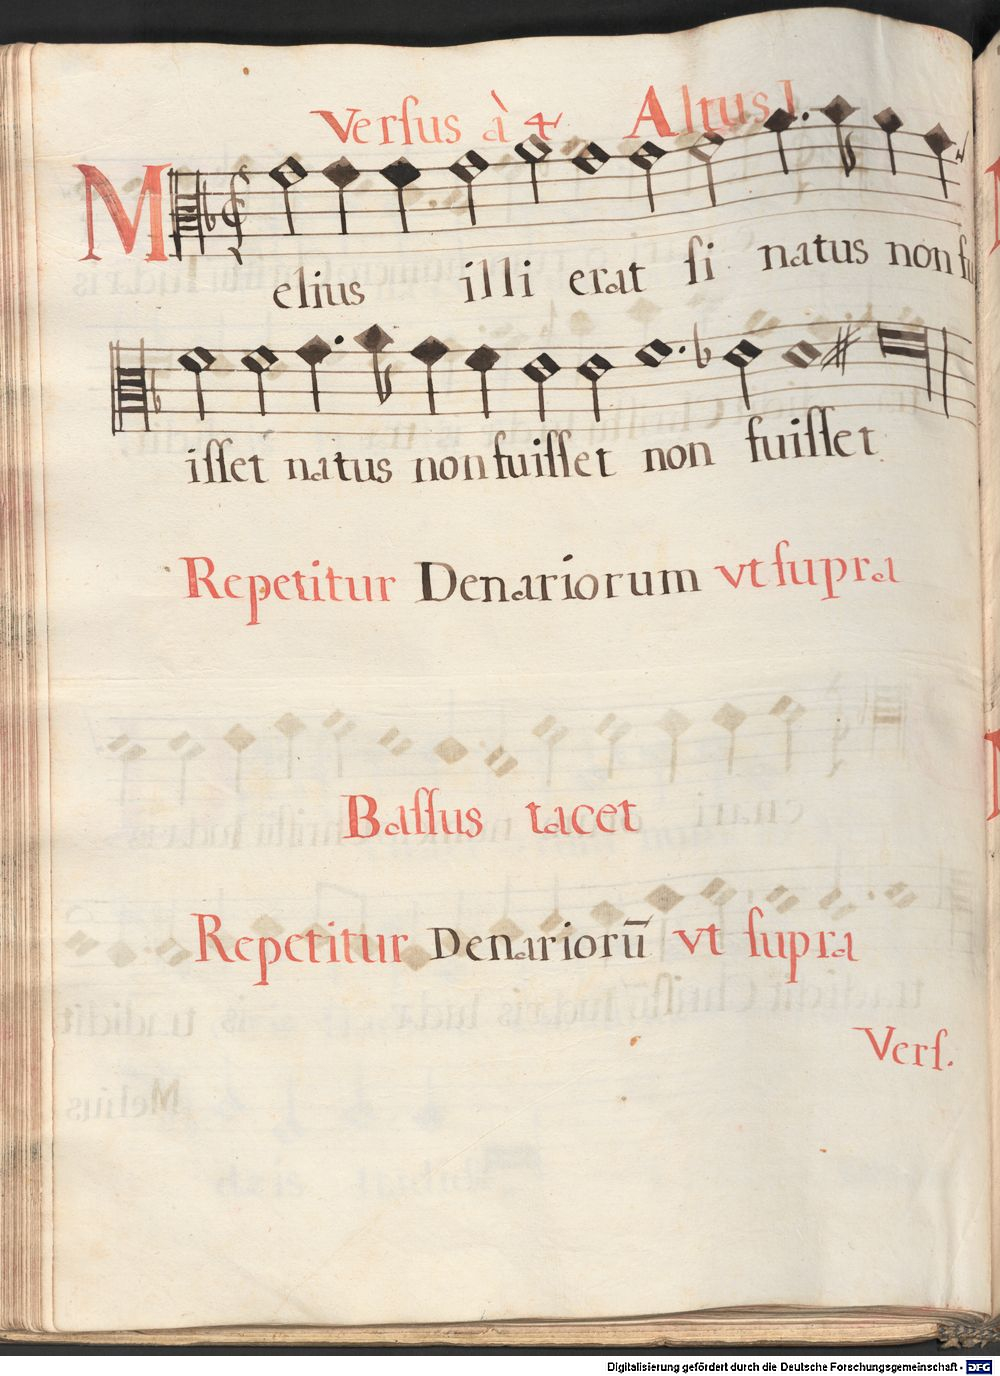 Versus à 4 Altus I.
Melius illi erat si natus non fu
isset natus non fuisset non fuisset
Repetitur Denariorum vt supra
Bassus tacet
Repetitur Denariorū vt supra
Vers.
Digitalisierung gefördert durch die Deutsche Forschungsgemeinschaft - DFG